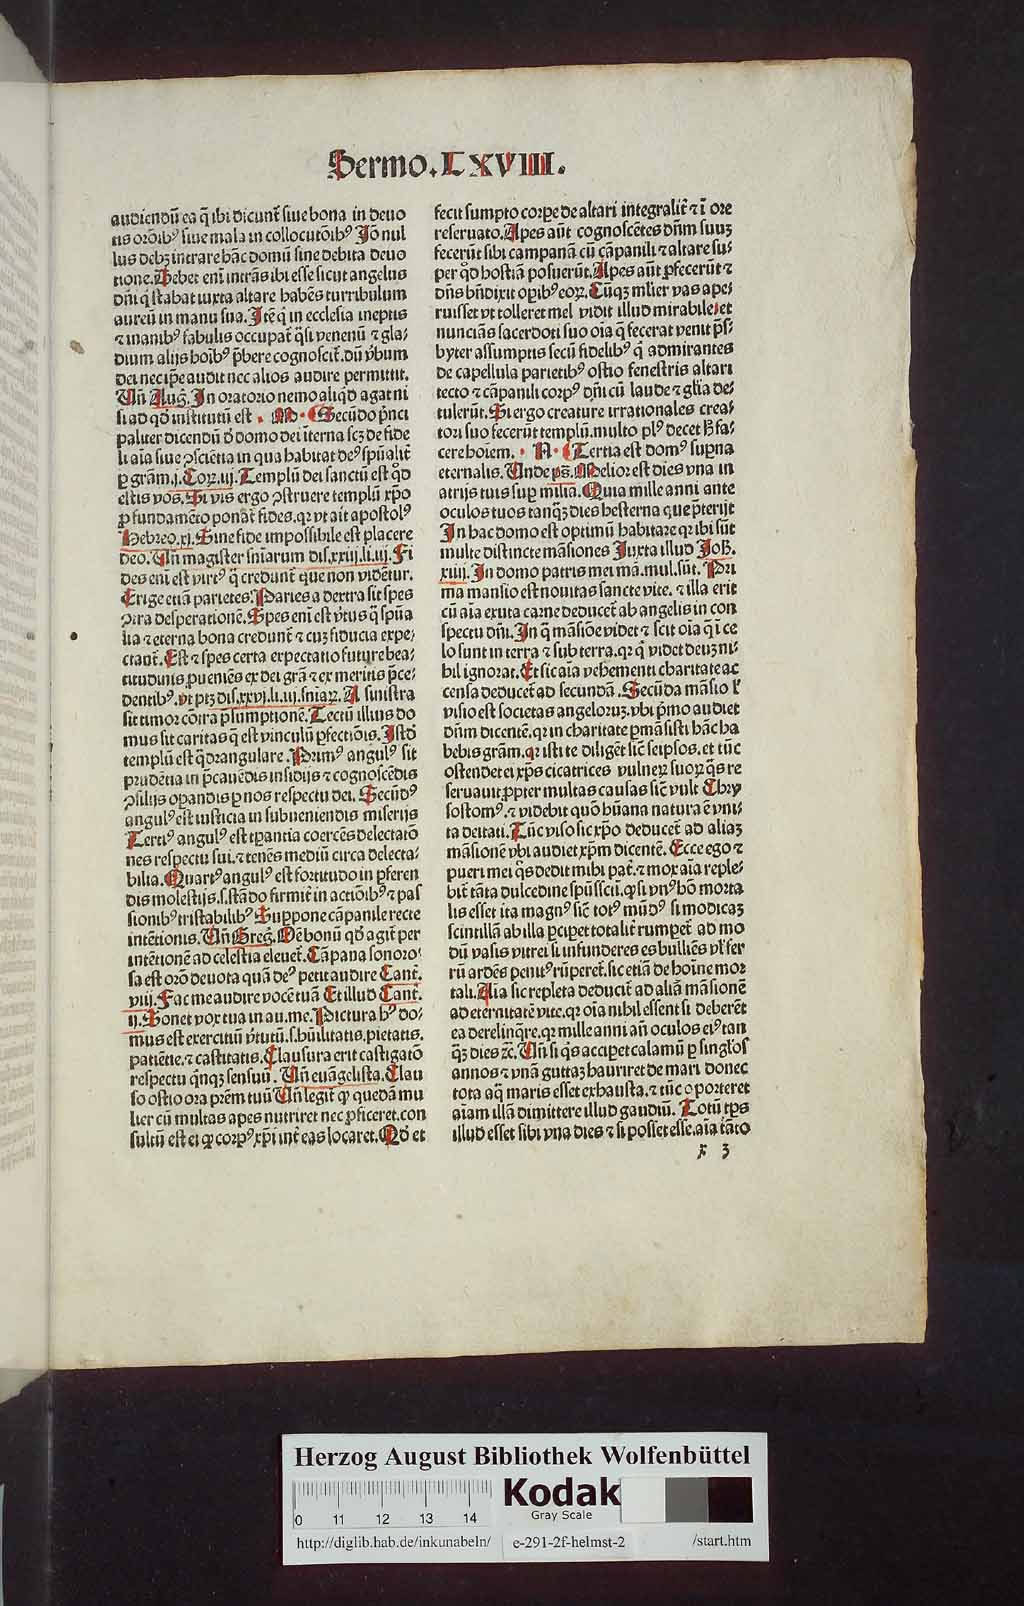 Sermo. LXVIII.
audiendū ea q̄ ibi dicunt̄ siue bona in deuo
tis orōibꝰ siue mala in collocutōibꝰ Iō nul
lus debꝫ intrare hāc domū sine debita deuo
tione. Debet eni intrās ibi esse sicut angelus
dn̄i q̄ stabat iuxta altare habēs turribulum
aureū in manu sua. Itē q̄ in ecclesia ineptis
⁊ inanibꝰ fabulis occupat̄ q̄si venenū ⁊ gla⸗
dium alijs hoībꝰ p̄bere cognoscit̄. dū v̄bum
dei nec ip̄e audit nec alios audire permittit.
Un̄ Auḡ. In oratorio nemo aliqd̄ agat ni
si ad qd̄ institutū est . M . Secūdo p̄nci
paliter dicendū d̄ domo dei īterna scꝫ de fide
li aīa siue ꝯscientia in qua habitat deꝰ sp̄ualit̄
ꝑ gram̄. j. Coꝝ. iij. Templū dei sanctū est qd̄
estis vos. Si vis ergo ꝯstruere templū xp̄o
ꝓ fundamēto ponat̄ fides. qꝛ vt ait apostolꝰ
Hebreo. xj. Sine fide impossibile est placere
deo. Un̄ magister sn̄iarum dis. xxiij. li. iij. Fi
des eni est virtꝰ q̄ credunt̄ que non vident̄ur.
Erige etiā parietes. Paries a dextra sit spes
ꝯtra desperationē. Spes eni est v̄tus q̄ sp̄ua
lia ⁊ eterna bona credunt̄ ⁊ cuꝫ fiducia expe⸗
ctant̄. Est ⁊ spes certa expectatio future bea⸗
titudinis ꝓueniēs ex dei grā ⁊ ex meritis p̄ce⸗
dentibꝰ. vt ptꝫ dis. xxvi. li. iij. sniaꝝ. A sinistra
sit timor cōtra p̄sumptionē. Tectū illius do
mus sit caritas q̄ est vinculū ꝑfectiōis. Istd̄
templū est q̄drangulare. Primꝰ angulꝰ sit
prudētia in p̄cauēdis insidijs ⁊ cognoscēdis
ꝯsilijs oꝑandis ꝑ nos respectu dei. Secūdꝰ
angulꝰ est iusticia in subueniendis miserijs
Tertiꝰ angulꝰ est tꝑantia coercēs delectatō
nes respectu sui. ⁊ tenēs mediū circa delecta⸗
bilia. Quartꝰ angulꝰ est fortitudo in ꝑferen
dis molestijs. s. stādo firmit̄ in actiōibꝰ ⁊ pas
sionibꝰ tristabilibꝰ Suppone cāpanile recte
intētionis. Un̄ Greḡ. Om̄e bonū qd̄ agit̄ per
intētionē ad celestia eleuet̄. Cāpana sonoro⸗
sa est orō deuota quā deꝰ petit audire Cant̄.
viij. Fac me audire vocē tuā Et illud Cant̄.
ij. Sonet vox tua in au. me. Pictura hꝰ do⸗
mus est exercitiū v̄tutū. s. hūilitatis. pietatis.
patiētie. ⁊ castitatis. Clausura erit castigatō
respectu q̄nqꝫ sensuū. Un̄ euāgelista. Clau
so ostio ora prēm tuū Un̄ legit̄ ꝙ quedā mu
lier cū multas apes nutriret nec ꝓficeret. con
sultū est ei ꝙ corpꝰ xp̄i int̄ eas locaret. Qd̄ et
fecit sumpto corꝑe de altari integralit̄ ⁊ ī ore
reseruato. Apes aūt cognoscētes dn̄m suuꝫ
fecerūt sibi campanā cū cāpanili ⁊ altare su⸗
per qd̄ hostiā posuerūt. Apes aūt ꝑfecerūt ⁊
dn̄s bn̄dixit oꝑibꝰ eoꝝ. Cūqꝫ mlier vas ape⸗
ruisset vt tolleret mel vidit illud mirabile. et
nunciās sacerdoti suo oīa q̄ fecerat venit p̄s⸗
byter assumptis secū fidelibꝰ q̄ admirantes
de capellula parietibꝰ ostio fenestris altari
tecto ⁊ cāpanili corpꝰ dn̄i cū laude ⁊ gl̄ia de⸗
tulerūt. Si ergo creature irrationales crea⸗
tori suo fecerūt templū. multo plꝰ decet h̄ fa⸗
cere hoīem. . N . Tertia est domꝰ suꝑna
eternalis. Unde ps̄. Melior est dies vna in
atrijs tuis suꝑ milia. Quia mille anni ante
oculos tuos tanqꝫ dies hesterna que p̄terijt
In hac domo est optimū habitare qꝛ ibi sūt
multe distincte māsiones Iuxta illud Joh̄.
xiiij. In domo patris mei mā. mul. sūt. Pri
ma mansio est nouitas sancte vite. ⁊ illa erit
cū aīa exuta carne deducet̄ ab angelis in con
spectu dn̄i. In q̄ māsiōe videt ⁊ scit oīa q̄ ī ce
lo sunt in terra ⁊ sub terra. qꝛ q̄ videt deuꝫ ni⸗
hil ignorat. Et sic aīa vehementi charitate ac
censa deducet̄ ad secundā. Secūda māsio ē
visio est societas angeloruꝫ. vbi p̄mo audiet
dn̄m dicentē. qꝛ in charitate ꝑmāsisti hāc ha
bebis grām. qꝛ isti te diligēt sic̄ seipsos. et tūc
ostendet ei xp̄s cicatrices vulneꝝ suoꝝ q̄s re
seruauit ꝓpter multas causas sic̄ vult Chry
sostomꝰ. ⁊ videbit quō hūana natura ē vni⸗
ta deitati. Tūc viso sic xp̄o deducet̄ ad aliaꝫ
māsionē vbi audiet xp̄m dicentē. Ecce ego ⁊
pueri mei q̄s dedit mihi pat̄. ⁊ mox aīa reple⸗
bit̄ tāta dulcedine sp̄ussctī. q̄ si vnꝰ hō morta
lis esset ita magnꝰ sic̄ totꝰ mūdꝰ si modicaꝫ
scintillā ab illa ꝑciꝑet totalit̄ rumꝑet̄ ad mo
dū vasis vitrei si infunderes es bulliēs vl̄ fer
rū ardēs penitꝰ rūperet̄. sic etiā de hoīne mor
tali. Aīa sic repleta deducit̄ ad aliā māsionē
ad eternitatē vite. qꝛ oīa nihil essent si deberēt
ea derelinq̄re. qꝛ mille anni añ oculos eiꝰ tan
q̄ꝫ dies ⁊c̄. Un̄ si q̄s acciꝑet calamū ꝑ singl̄os
annos ⁊ vnā guttaꝫ hauriret de mari donec
tota aq̄ maris esset exhausta. ⁊ tūc oporteret
aīam illā dimittere illud gaudiū. Totū tp̄s
illud esset sibi vna dies ⁊ si posset esse. aīa tāto
x 3
Herzog August Bibliothek Wolfenbüttel
0 11 12 13 14
Kodak
Gray Scale
http://diglib.hab.de/inkunabeln/ e-291-2f-helmst-2 /start.htm